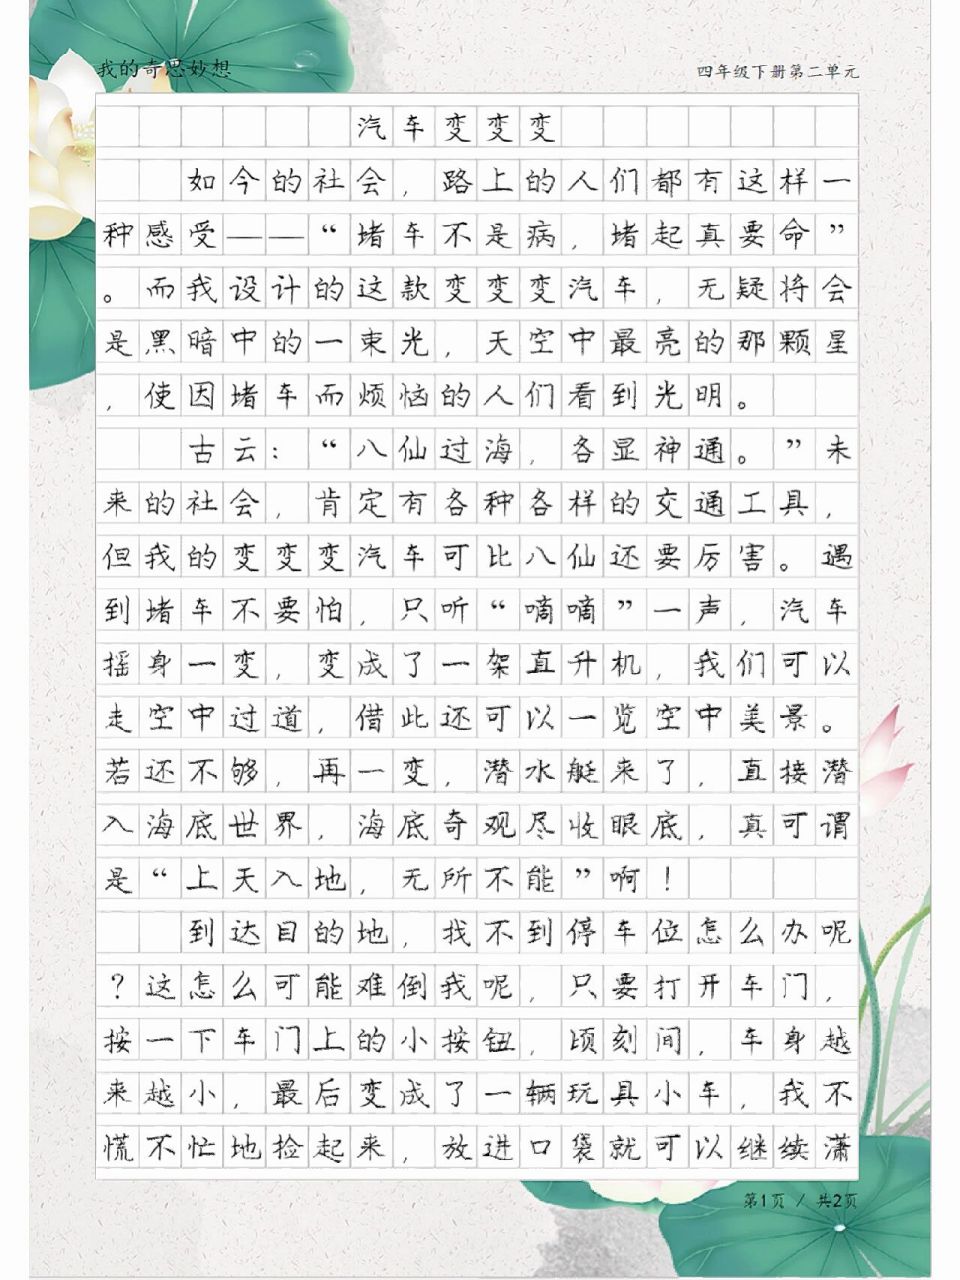 我的奇思妙想
四年级下册第二单元
汽车变变变
如今的社会，路上的人们都有这样一
种感受——“堵车不是病，堵起真要命”
。而我设计的这款变变变汽车，无疑将会
是黑暗中的一束光，天空中最亮的那颗星
，使因堵车而烦恼的人们看到光明。
古云：“八仙过海，各显神通。”未
来的社会，肯定有各种各样的交通工具，
但我的变变变汽车可比八仙还要厉害。遇
到堵车不要怕，只听“嘀嘀”一声，汽车
摇身一变，变成了一架直升机，我们可以
走空中过道，借此还可以一览空中美景。
若还不够，再一变，潜水艇来了，直接潜
入海底世界，海底奇观尽收眼底，真可谓
是“上天入地，无所不能”啊！
到达目的地，找不到停车位怎么办呢
？这怎么可能难倒我呢，只要打开车门，
按一下车门上的小按钮，顷刻间，车身越
来越小，最后变成了一辆玩具小车，我不
慌不忙地捡起来，放进口袋就可以继续潇
第1页 / 共2页